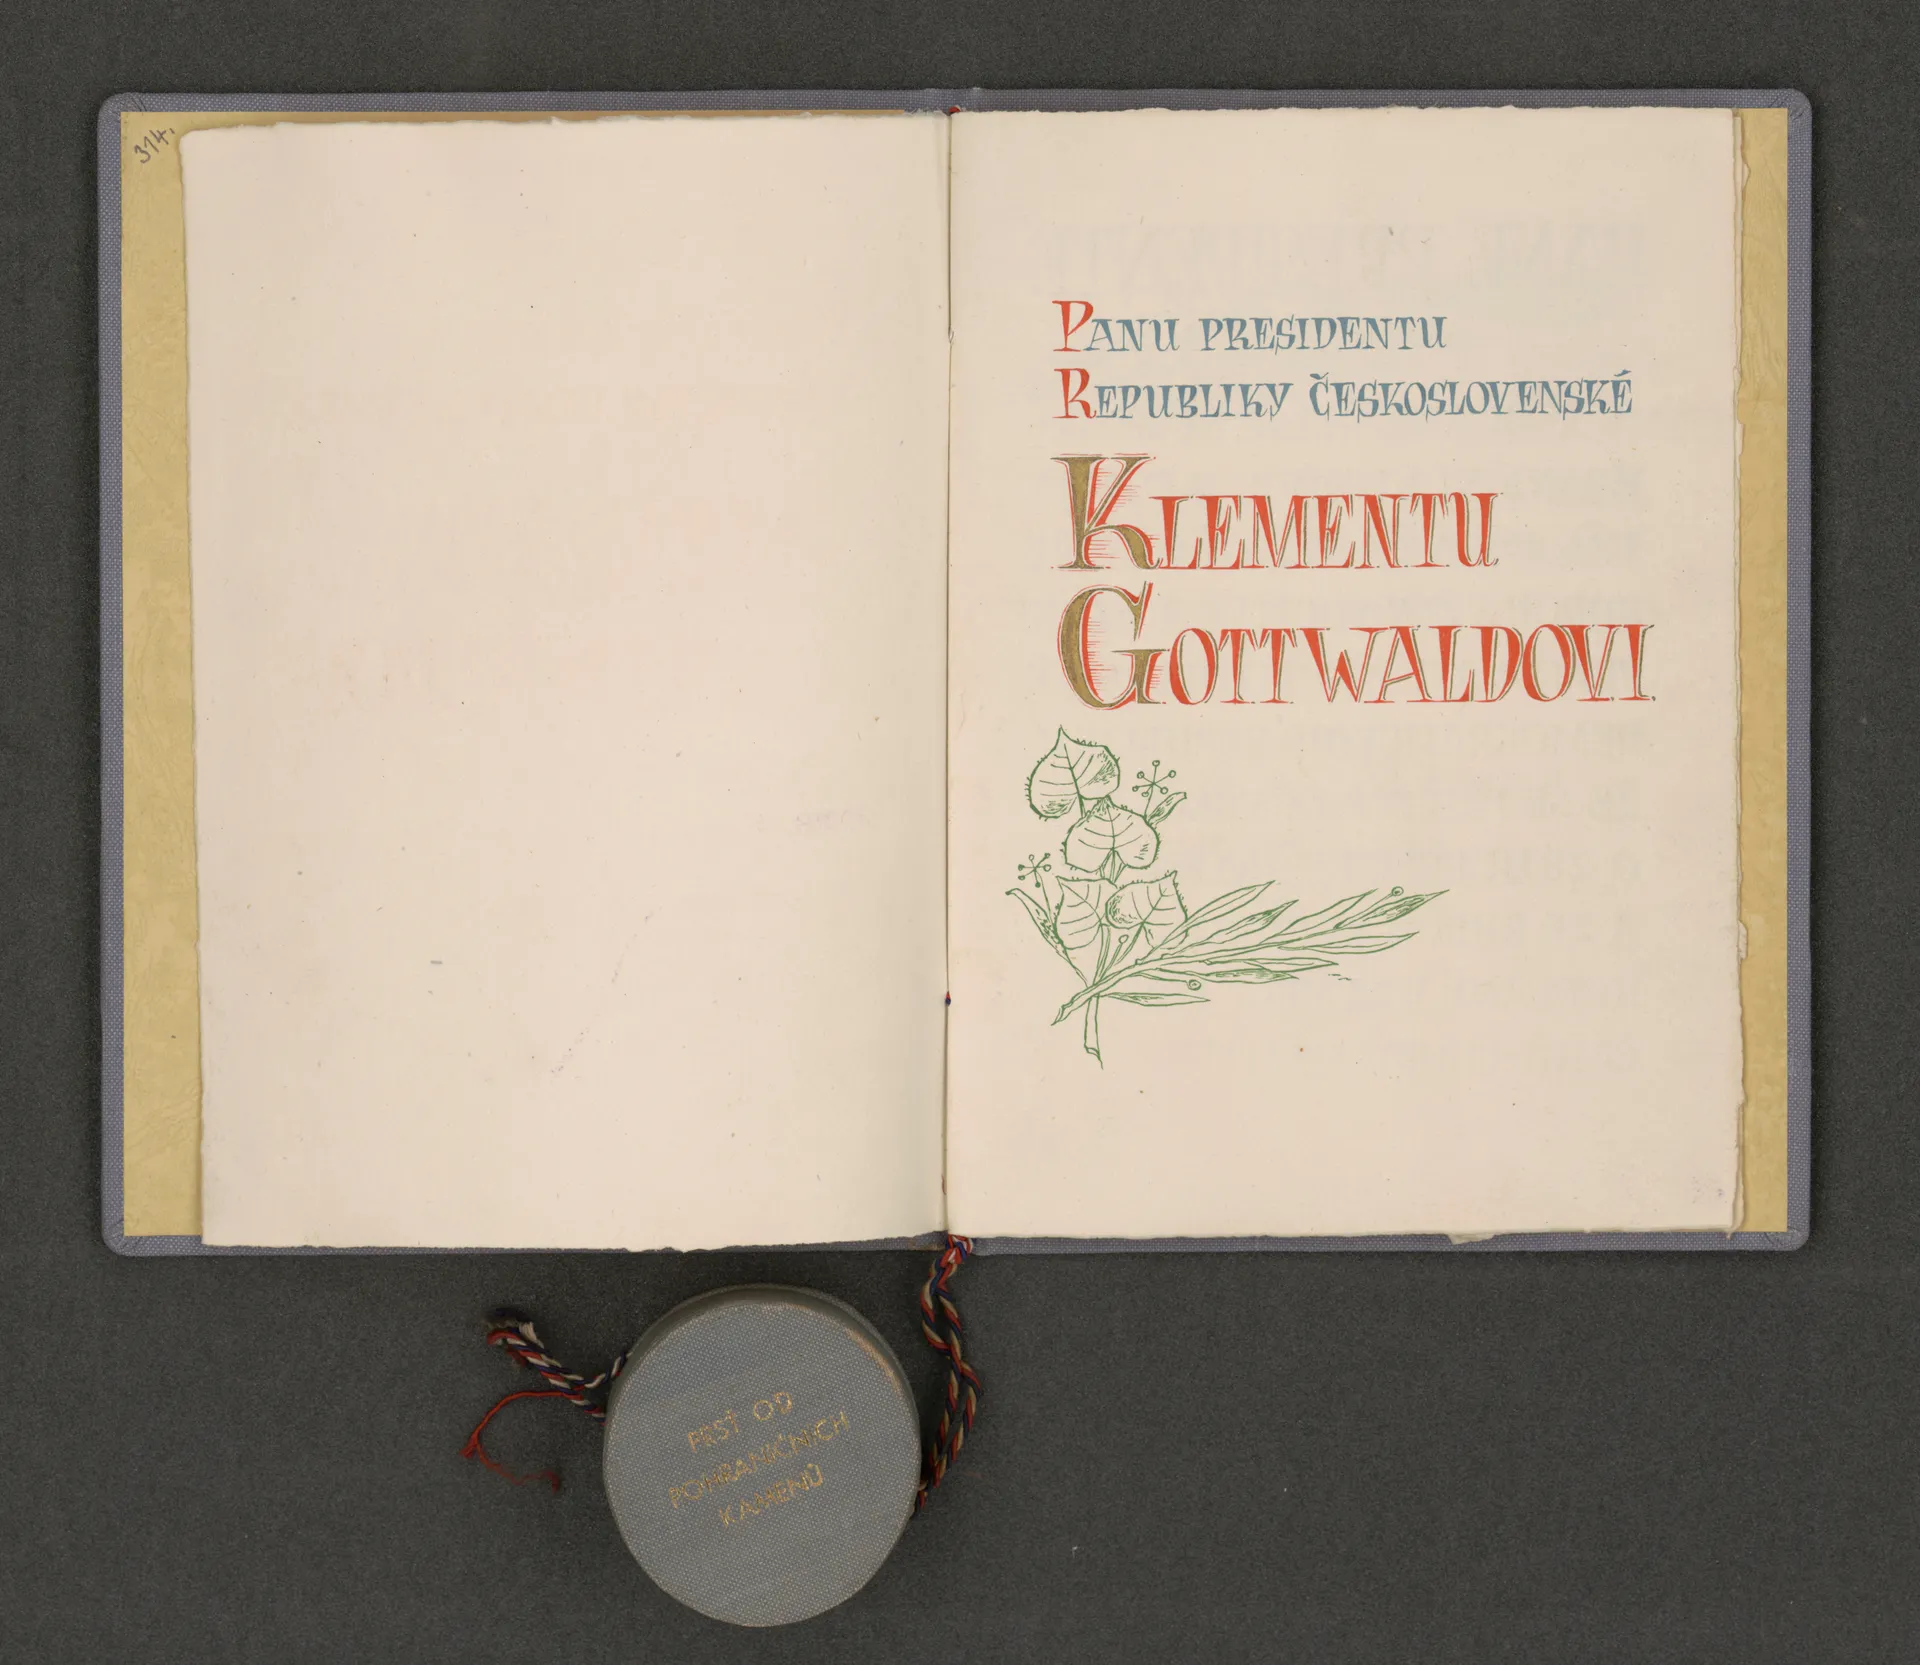 314.
PANU PRESIDENTU
REPUBLIKY ČESKOSLOVENSKÉ
KLEMENTU
GOTTWALDOVI.
PRSŤ OD
POHRANIČNÍCH
KAMENŮ